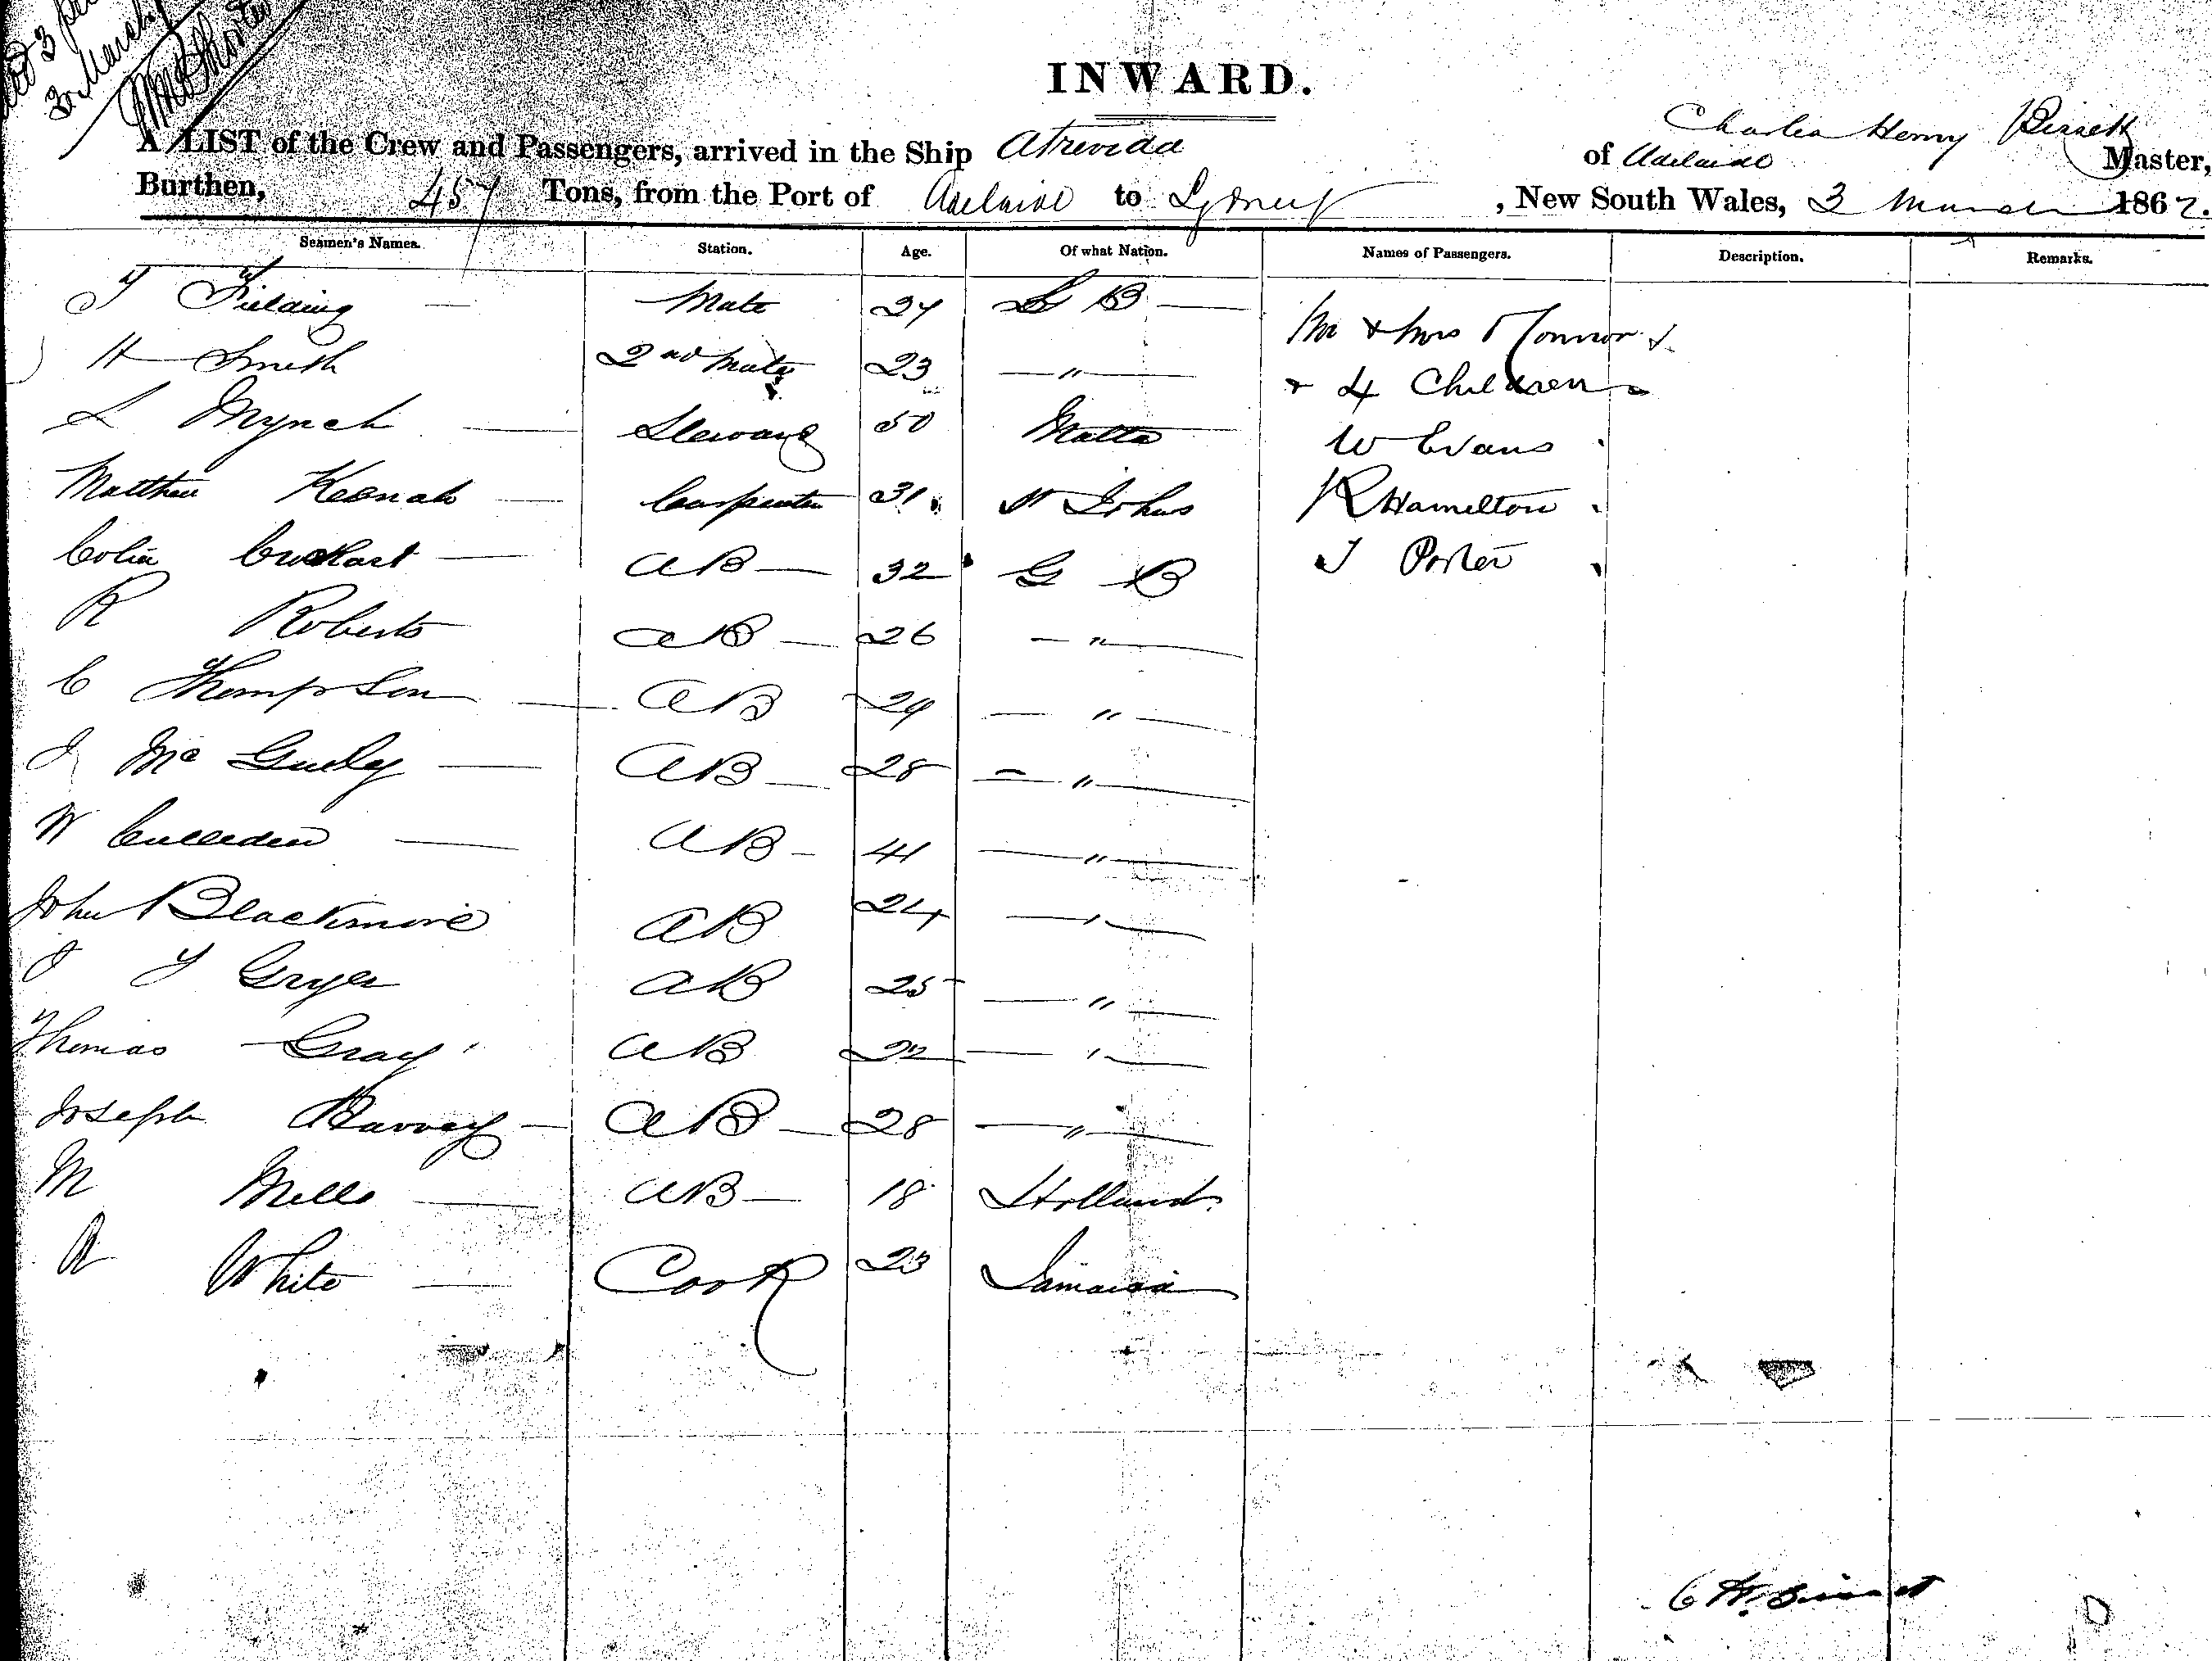 3 March
INWARD.
A LIST of the Crew and Passengers, arrived in the Ship Atrevida of Adelaide Charles Henry Master,
Burthen, 457 Tons, from the Port of Adelaide to Sydney, New South Wales, 3 March 1862.
Seamen's Names. Station. Age. Of what Nation. Names of Passengers. Description. Remarks.
Fielding — Mate — B —
H Smith 2nd Mate 23 — " —
L Mynch — Steward 50 Malta
Matthew — Carpenter 31 St Johns
Colin — AB — 32 G B
R Roberts AB — 26 — " —
C Thompson — AB 29 — " —
J Mc — AB — 28 — " —
W — AB — 41 — " —
John Blackmore AB 24 — " —
J Gryer AB 25 — " —
Thomas Gray AB 22 — " —
Joseph — AB — 28 — " —
M Mills — AB — 18 Holland.
White — Cook 23 Jamaica
Mr & Mrs
& 4 Children
W Evans
R Hamilton
J Porter
C H